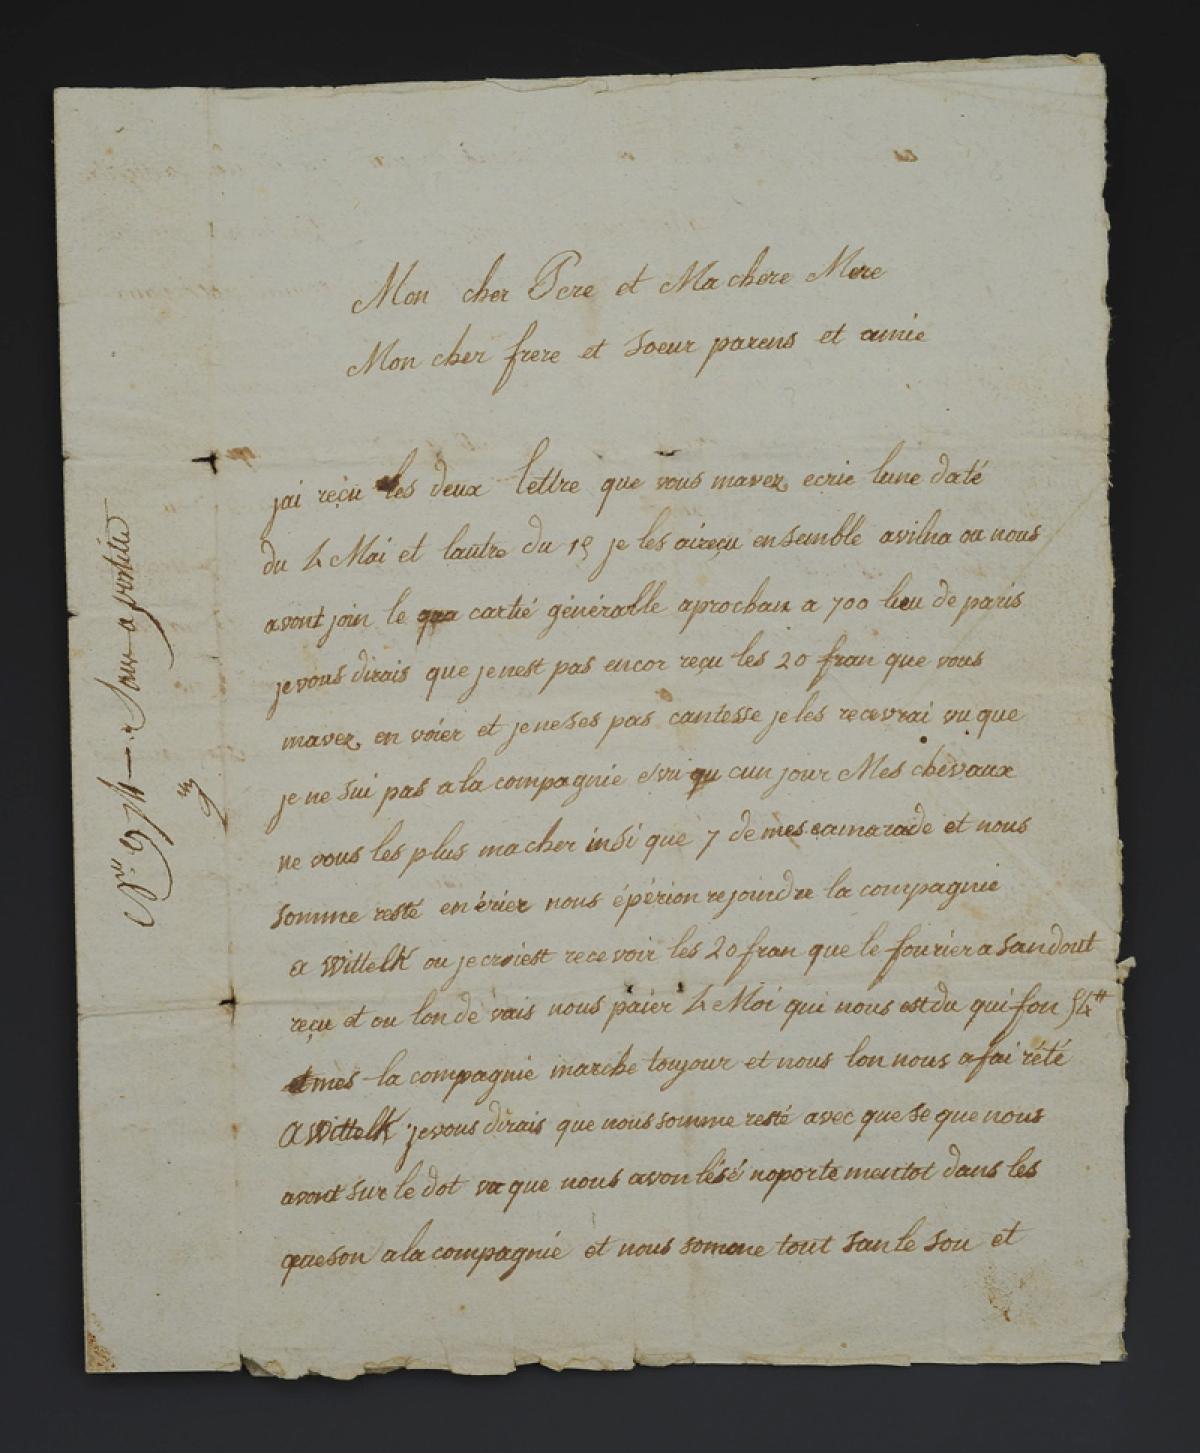 Mon cher Pere et Ma chere Mere
Mon cher frere et soeur parens et amie
jai reçu les deux lettre que vous mavez ecrie lune daté
du 4 Mai et lautre du 15 je les aireçu ensemble avilna ou nous
avont join le cartié généralle aprochan a 700 lieu de paris
jevous dirais que jenest pas encor reçu les 20 fran que vous
mavez en voier et jeneses pas cantesse jeles recevrai vu que
je ne sui pas a la compagnie cun jour Mes chevaux
ne vous les plus macher insi que 7 de mes camarade et nous
somme resté enérier nous épérion rejoindre la compagnie
a Wittelk ou jecroiest rece voir les 20 fran que le fourier a sandout
reçu et ou lon de vais nous paier 4 Moi qui nous est du qui fon 54#
et mes la compagnie marche toujour et nous lon nous a fai rété
A Wittelk jevous dirais que nous somme resté avec que se que nous
avont sur le dot vu que nous avon lésé noporte mentot dans les
queson a la compagnie et nous somme tout san le sou et